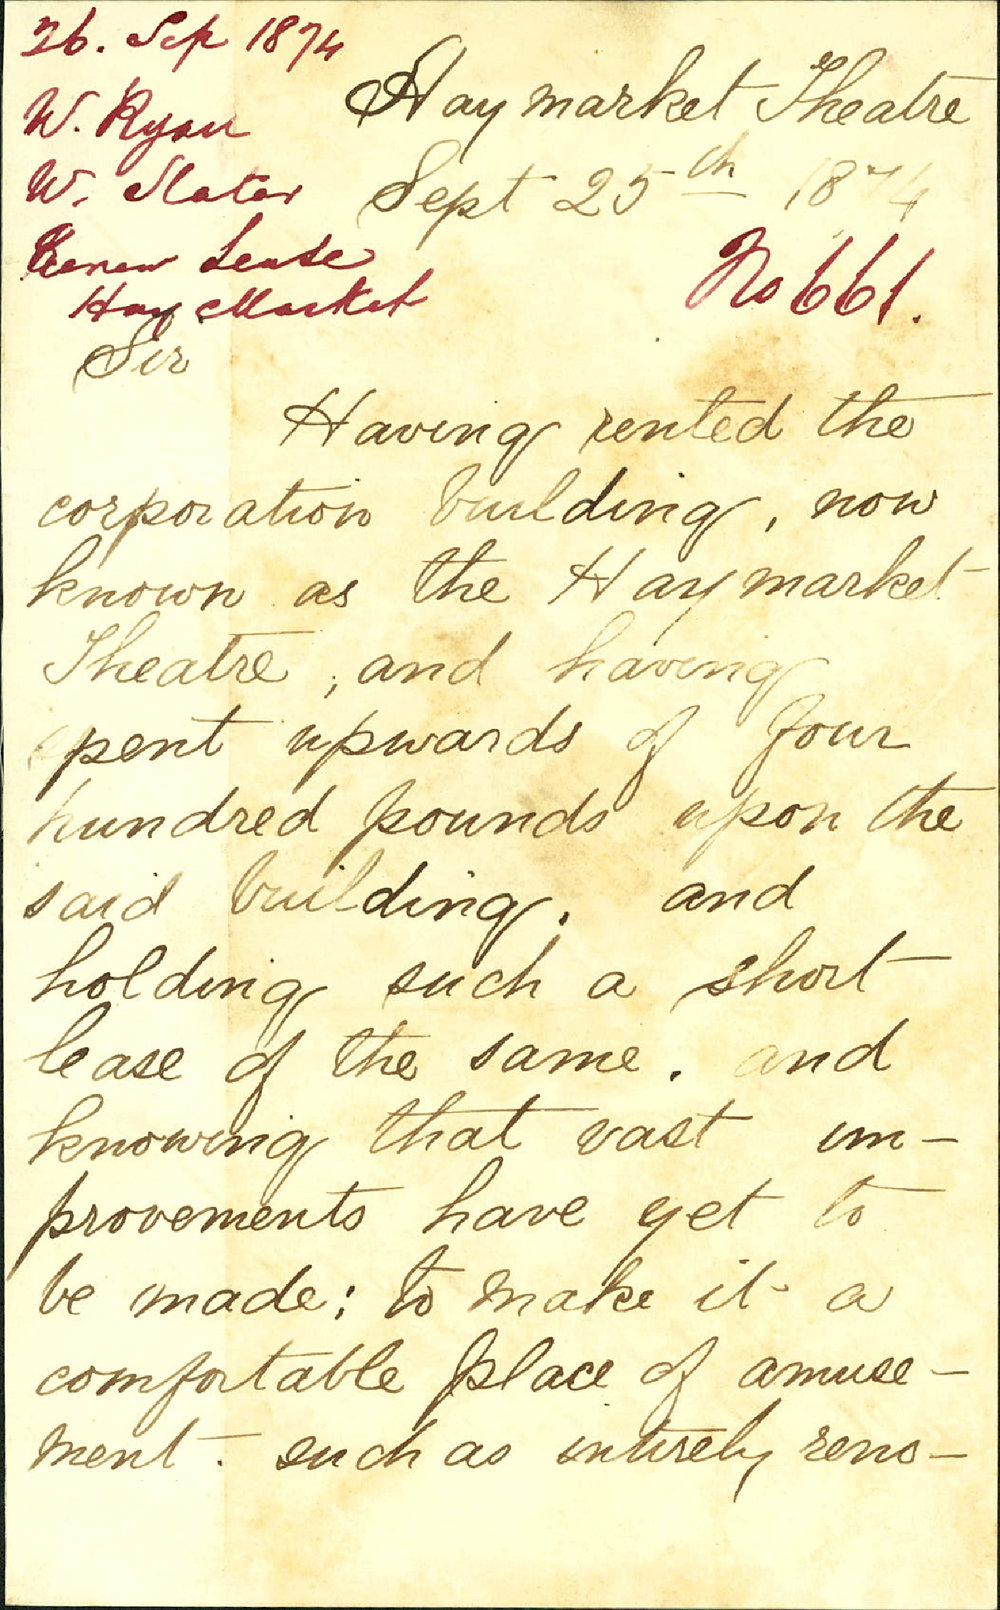 26. Sep 1874
W. Ryan
W. Slater
Renew Lease
Hay Market
Haymarket Theatre
Sept 25th 1874
No 661.
Sir
Having rented the
corporation building, now
known as the Haymarket
Theatre, and having
spent upwards of four
hundred pounds upon the
said building. and
holding such a short
lease of the same. and
knowing that vast im-
provements have yet to
be made; to make it a
comfortable place of amuse-
ment. such as intirely reno-